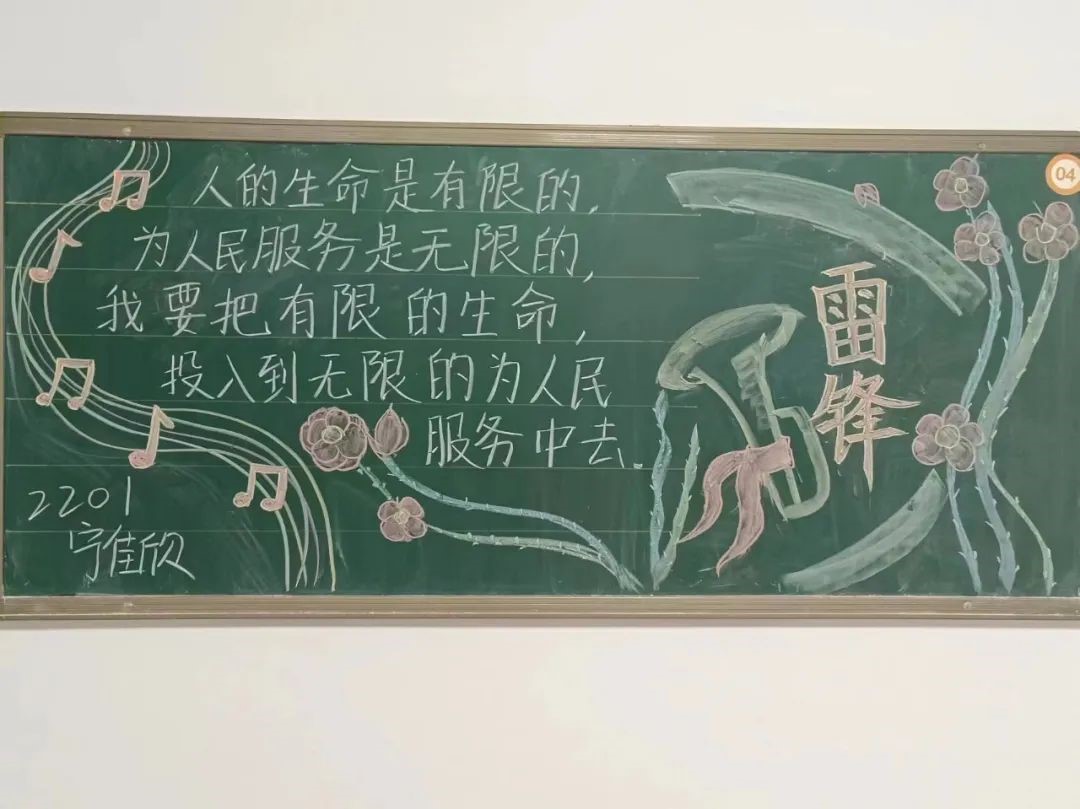 人的生命是有限的,
为人民服务是无限的,
我要把有限的生命,
投入到无限的为人民
服务中去.
雷锋
2201
宁佳欣
04